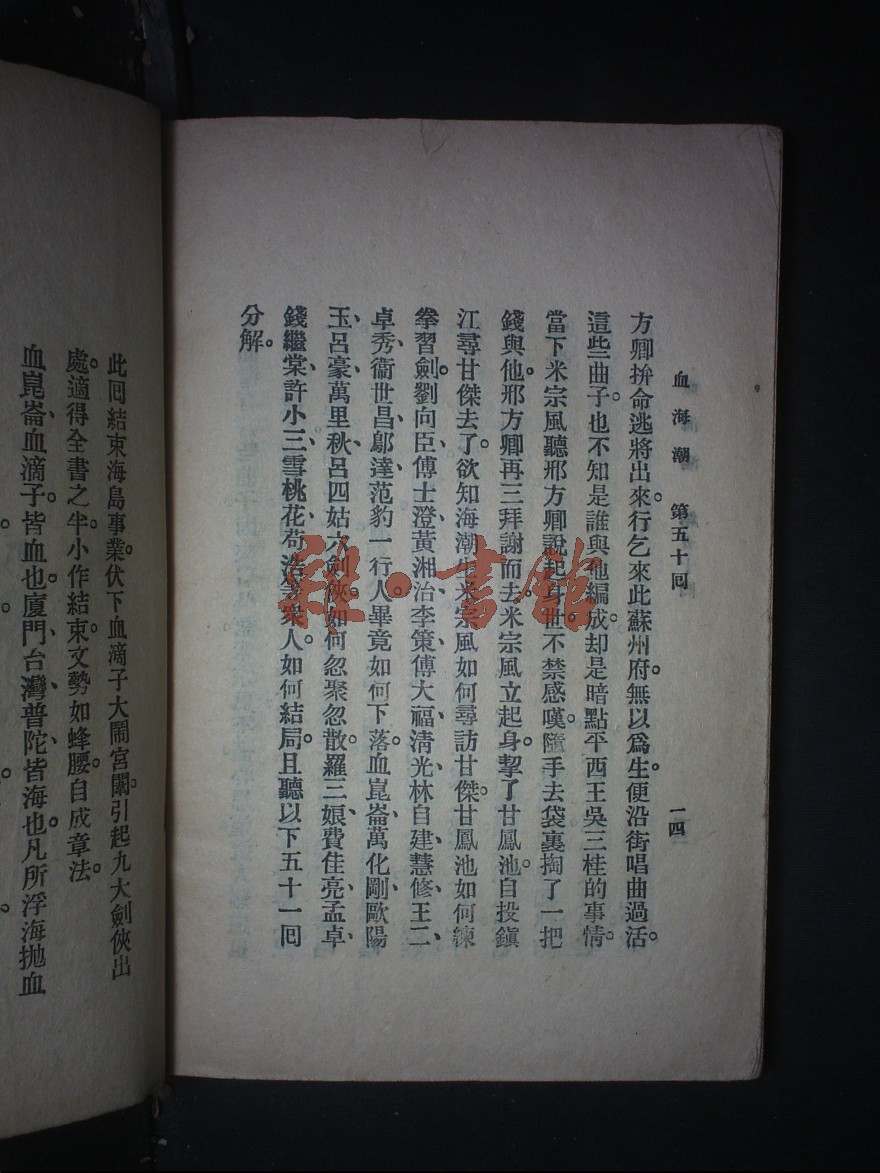 血海潮　第五十回　一四
方卿拚命逃將出來。行乞來此蘇州府。無以爲生。便沿街唱曲過活。
這些曲子。也不知是誰與他編成。却是暗點平西王吳三桂的事情。
當下米宗風聽邢方卿說起身世。不禁感嘆。隨手去袋裏掏了一把
錢與他。邢方卿再三拜謝而去。米宗風立起身。挈了甘鳳池。自投鎭
江尋甘傑去了。欲知海潮生米宗風如何尋訪甘傑。甘鳳池如何練
拳習劍。劉向臣、傅士澄、黃湘治、李策、傅大福、清光、林自建、慧修、王二、
卓秀、衞世昌、鄔達、范豹一行人畢竟如何下落。血崑崙萬化剛、歐陽
玉、呂豪、萬里秋、呂四姑六劍俠。如何忽聚忽散。羅三娘、費佳亮、孟卓、
錢繼棠、許小三、雪桃花、苟浩等衆人如何結局。且聽以下五十一回
分解。
此回結束海島事業。伏下血滴子大鬧宮闈。引起九大劍俠出
處。適得全書之半。小作結束。文勢如蜂腰。自成章法。
血崑崙、血滴子。皆血也。廈門、台灣、普陀。皆海也。凡所浮海拋血
程·書館